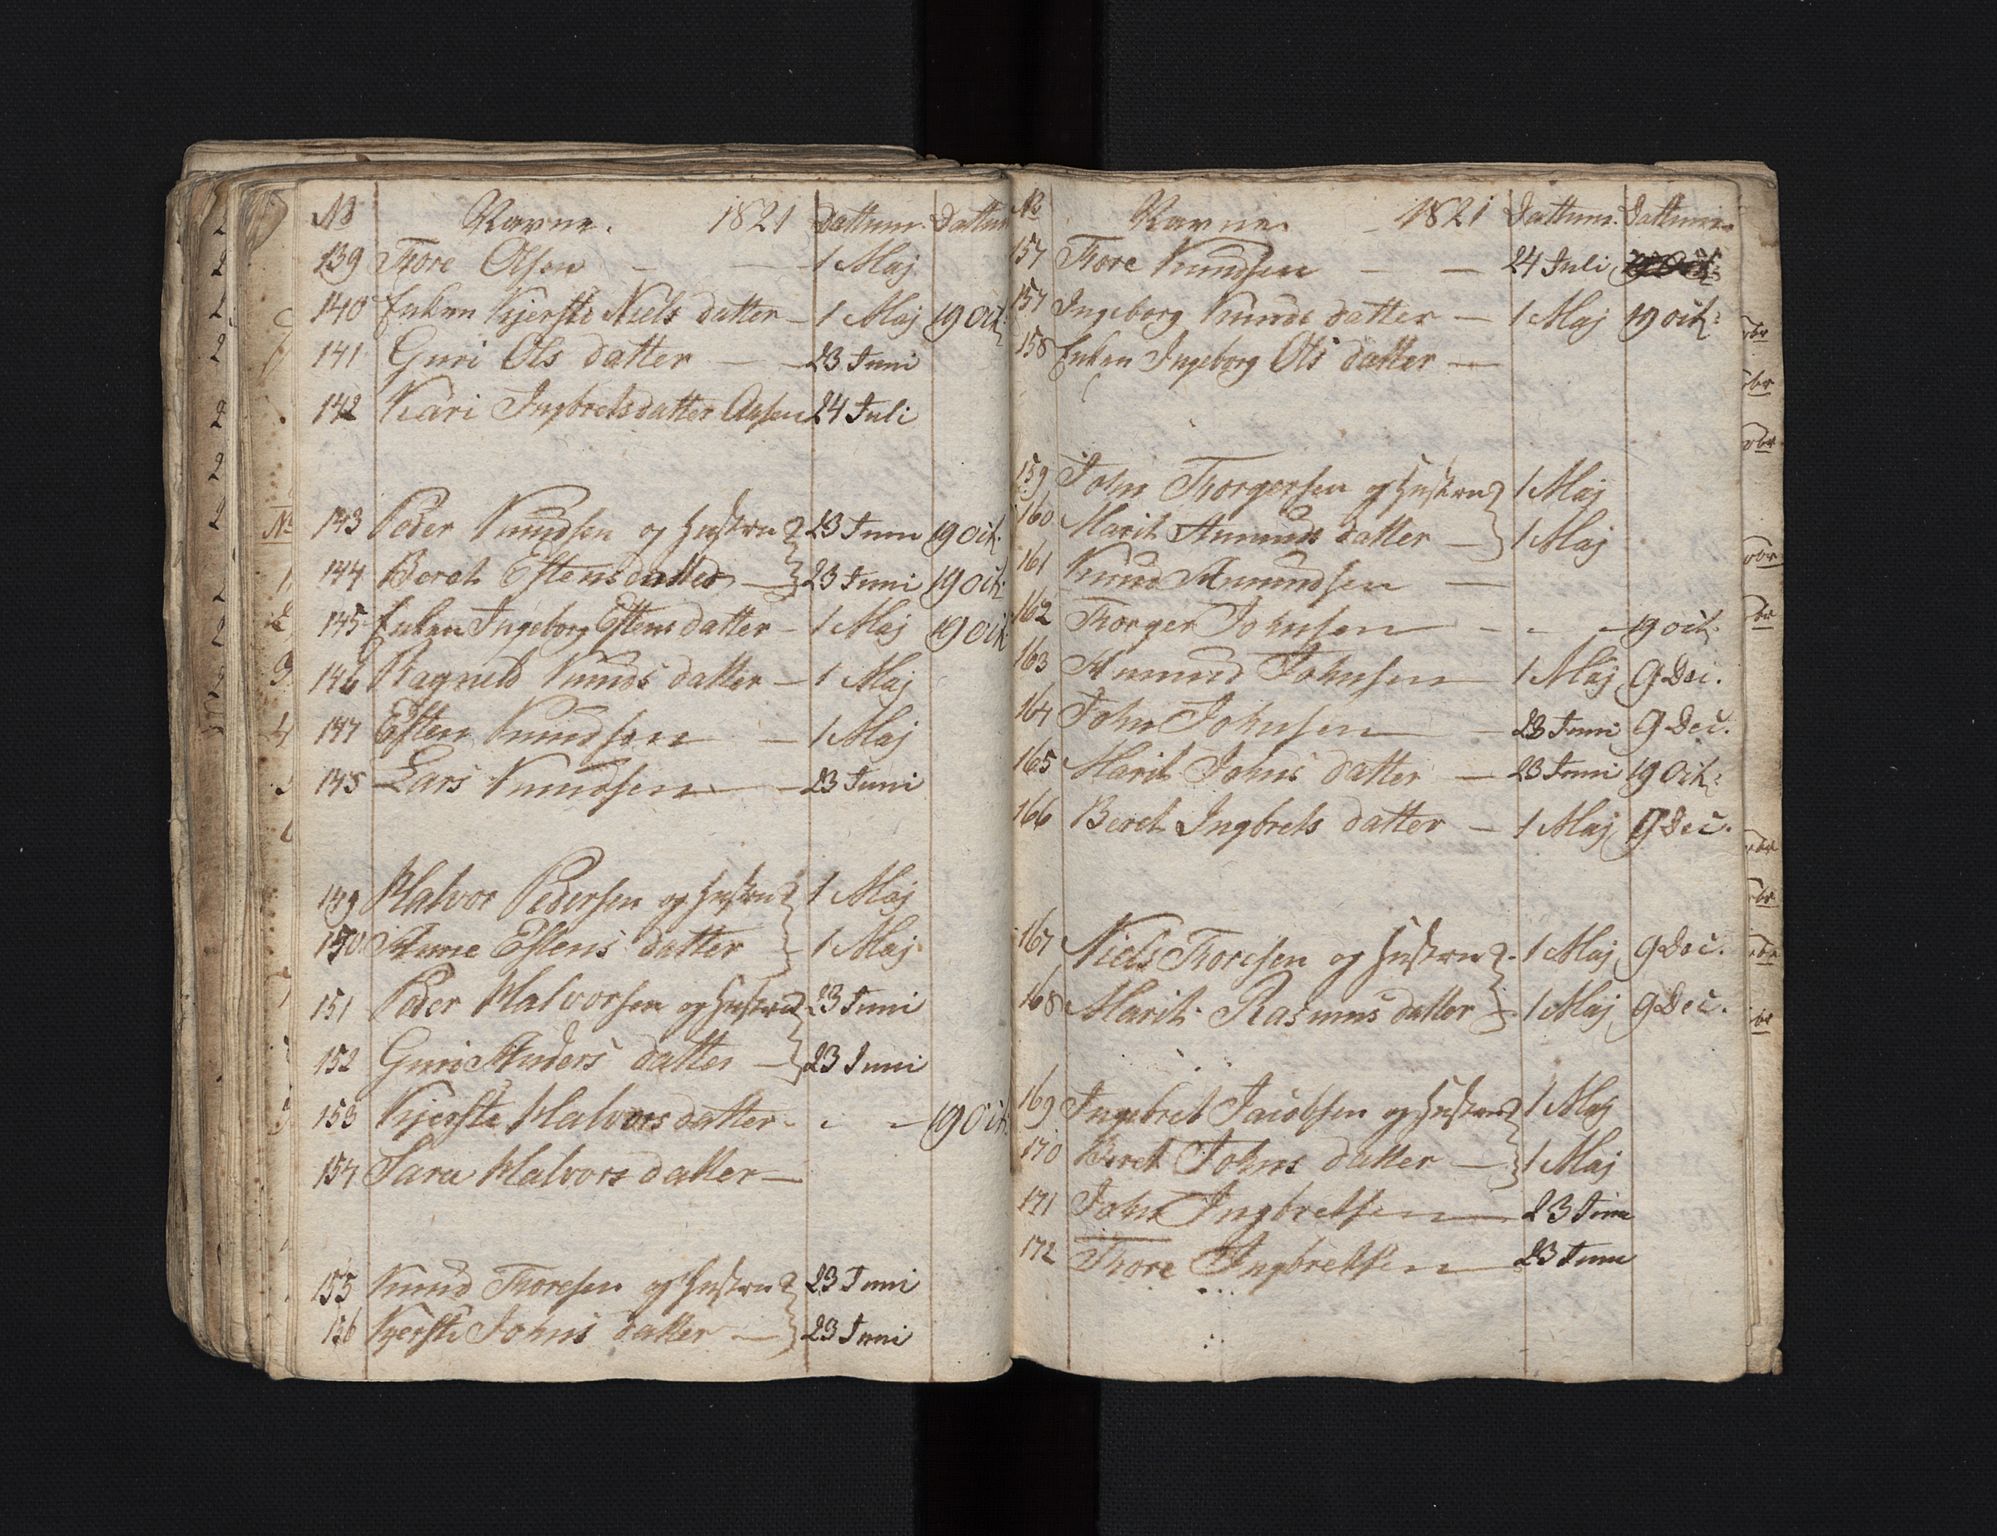 No Navne. 1821 Dattum. Dattum
139 Tore Olsen — — 1 Maj
140 Enken Kjersti Niels datter — 1 Maj 19 Oct:
141 Guri Ols datter — — 23 Juni
142 Kari Ingbretsdatter Aasen 24 Juli
143 Peder Knudsen og Hustru 23 Juni 19 Oct.
144 Beret Estensdatter — 23 Juni 19 Oct:
145 Enken Ingeborg Estens datter — 1 Maj 19 Oct:
146 Ragneld Knuds datter — 1 Maj
147 Esten Knudsen — 1 Maj
148 Lars Knudsen — 23 Juni
149 Halvor Pedersen og Hustru 1 Maj
150 Anne Estens datter 1 Maj
151 Peder Halvorsen og Hustru 23 Juni
152 Guri Anders datter — 23 Juni
153 Kjersti Halvors datter - - — 19 Oct.
154 Sara Halvors datter —
155 Knud Toresen og Hustru 23 Juni
156 Kjersti Johns datter — 23 Juni
No Navne. 1821 Dattum. Dattum.
157 Tore Knudsen — — 24 Juli
157 Ingeborg Knuds datter — 1 Maj 19 Oct:
158 Enken Ingeborg Ols datter —
159 John Torgersen og Hustru 1 Maj
160 Marit Amunds datter — 1 Maj
161 Knud Amundsen —
162 Torger Johnsen - - — 19 Oct.
163 Amund Johnsen — 1 Maj 9 Dec.
164 John Johnsen — 23 Juni 9 Dec.
165 Marit Johns datter — 23 Juni 19 Oct:
166 Beret Ingbrets datter — 1 Maj 9 Dec.
167 Niels Toresen og Hustru 1 Maj 9 Dec.
168 Marit Rasmus datter — 1 Maj 9 Dec.
169 Ingebret Jacobsen og Hustru 1 Maj
170 Beret Johns datter — 1 Maj
171 John Ingbretsen — 23 Juni
172 Tore Ingbretsen — 23 Juni